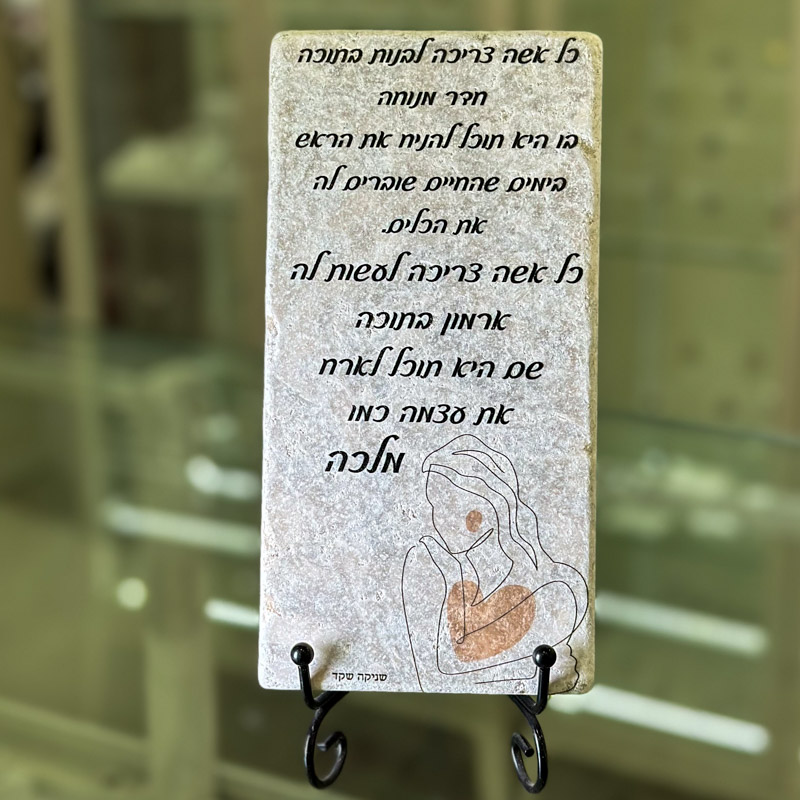 כל אשה צריכה לבנות בתוכה
חדר מנוחה
בו היא תוכל להניח את הראש
בימים שהחיים שוברים לה
את הכלים.
כל אשה צריכה לעשות לה
ארמון בתוכה
שם היא תוכל לארח
את עצמה כמו
מלכה
שניקה שקד